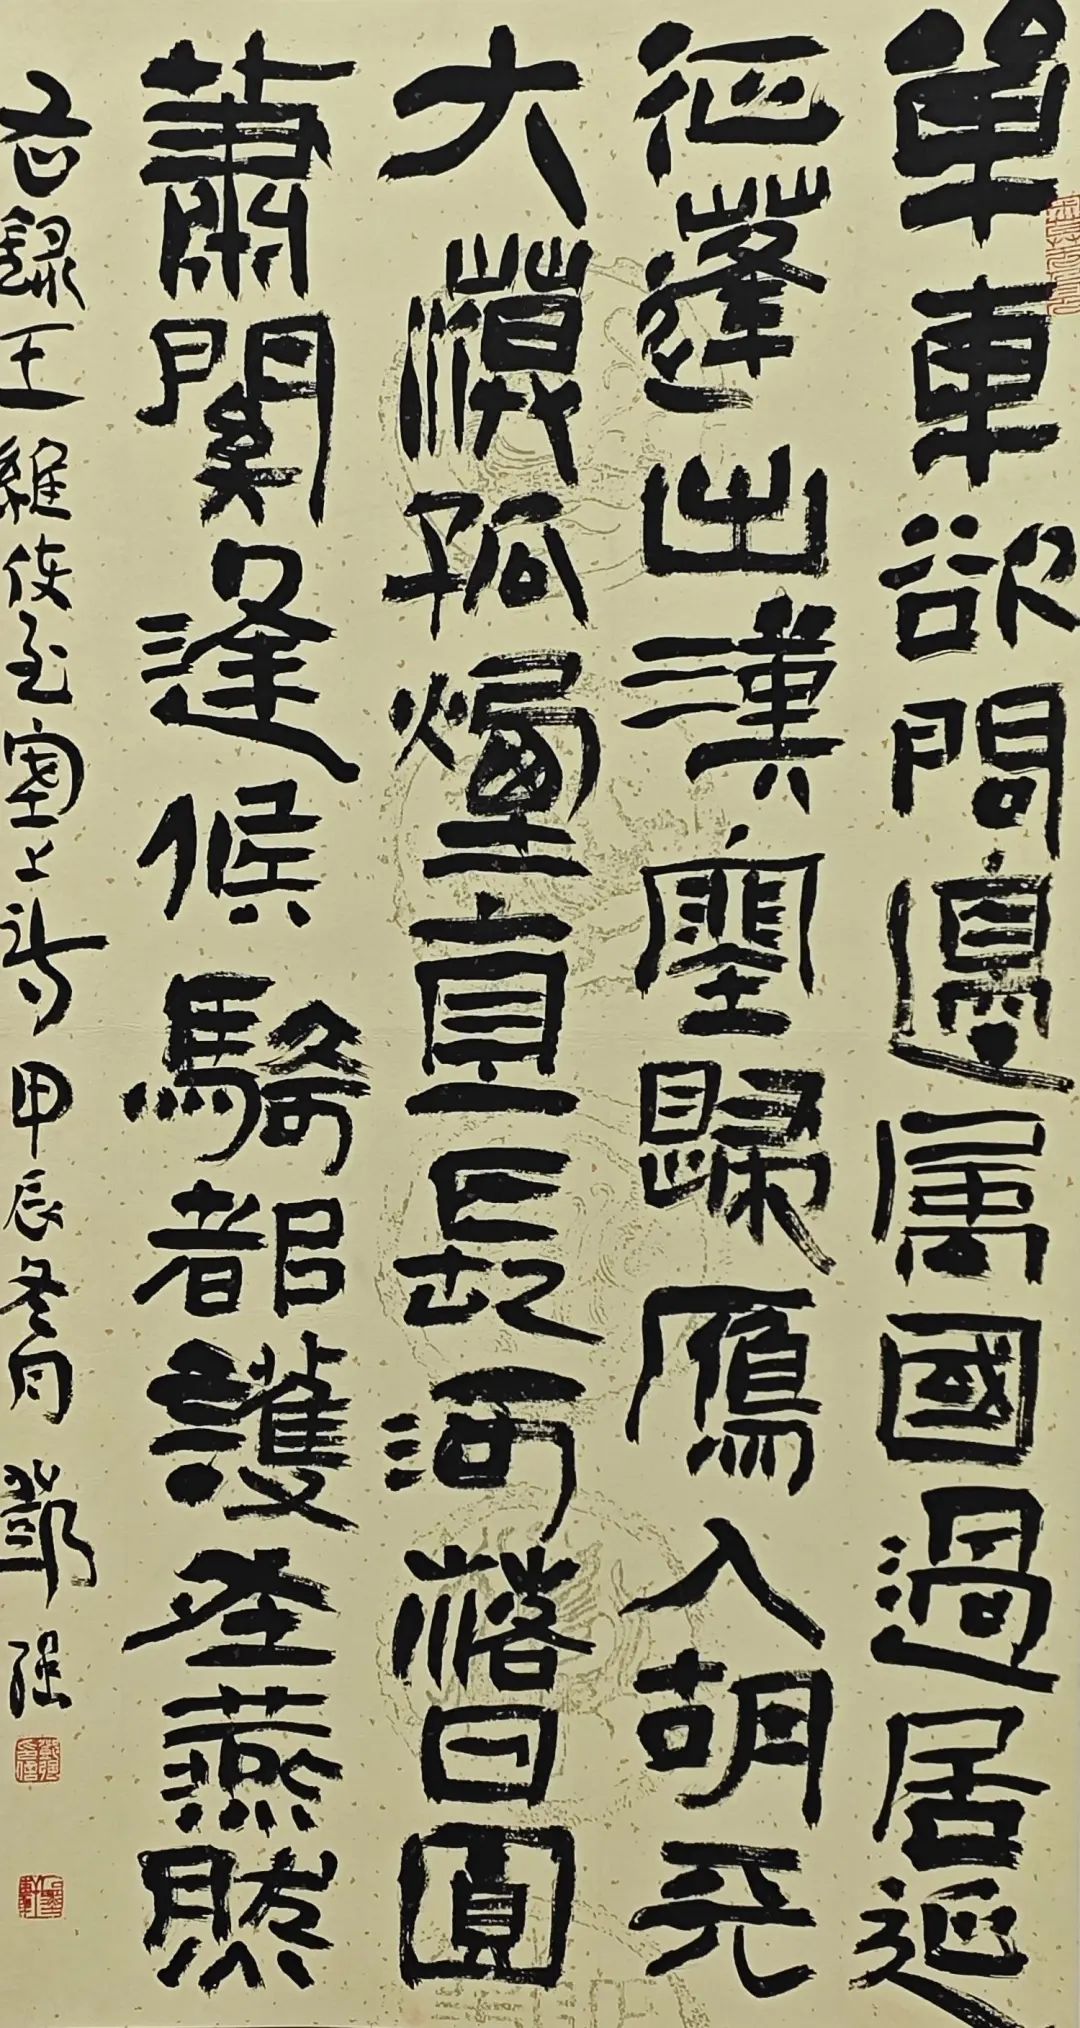 單車欲問邊屬國過居延
征蓬出漢塞歸鴈入胡天
大漠孤煙直長河落日圓
蕭關逢候騎都護在燕然
右録王維使至塞上詩甲辰冬月鄧強